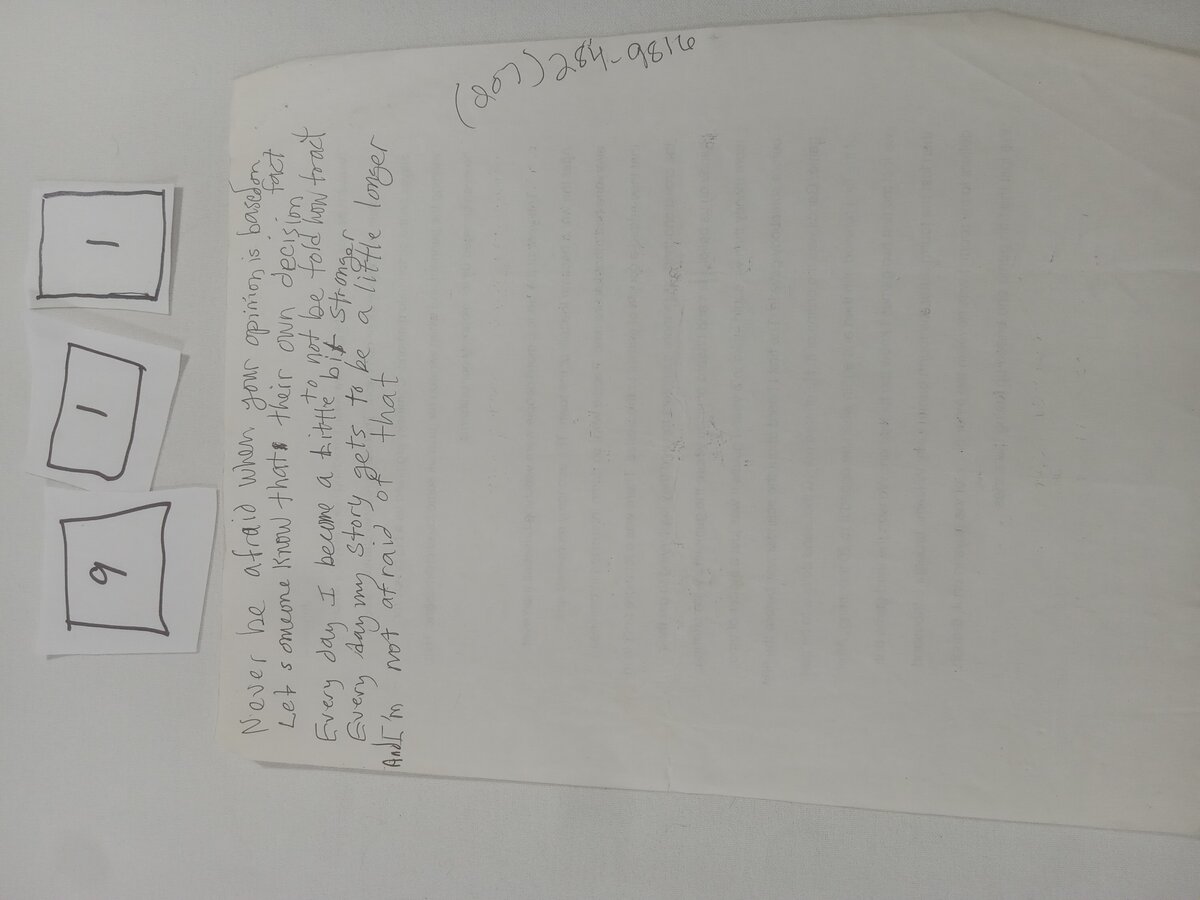 9 1 1
Never be afraid when your opinion is based on
fact
Let someone know that their own decision
to not be told how to act
Every day I become a little bit stronger
Every day my story gets to be a little longer
And I'm not afraid of that
(207) 284-9816